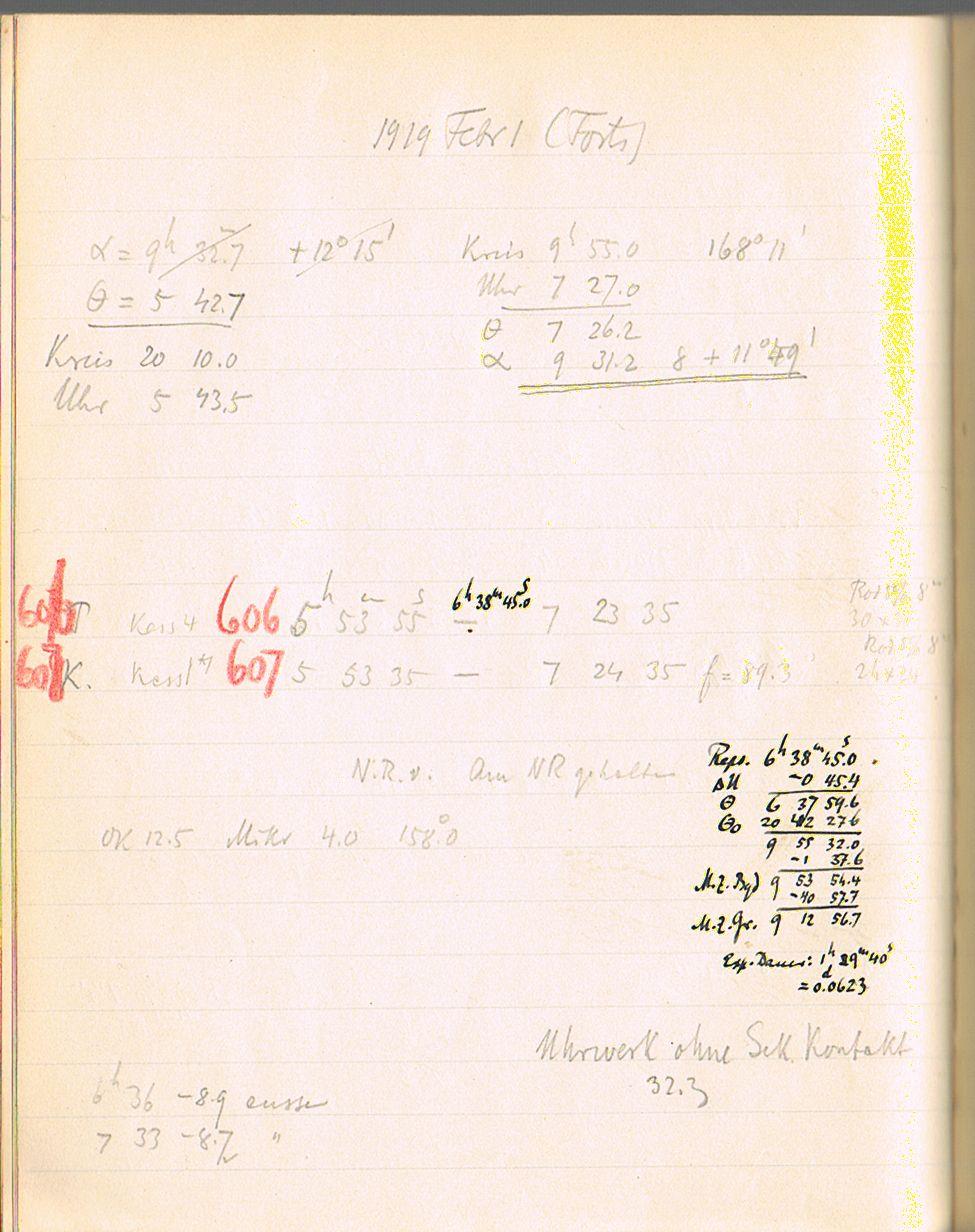 1919 Febr 1 (Forts)
α = 9h 32m.7 +12° 15'
θ = 5 42.7
Kreis 20 10.0
Uhr 5 43.5
Kreis 9h 55.0 168° 11'
Uhr 7 27.0
θ 7 26.2
α 9 31.2 δ + 11° 49'
606 T Kass 4 606 5h 53m 55s 6h 38m 45.0s — 7 23 35
30 x
607 K. Kass1 607 5 53 35 — 7 24 35 f = 89.3
24 x 24
N.R.v. Am NR gehalten
OK 12.5 Mikr 4.0 158°.0
Reps. 6h 38m 45s.0
ΔU -0 45.4
θ 6 37 59.6
θ₀ 20 42 27.6
9 55 32.0
-1 37.6
M.Z.Bgd 9 53 54.4
-40 57.7
M.Z.Gr. 9 12 56.7
Exp. Dauer: 1h 29m 40s
= 0d.0623
Uhrwerk ohne Sek. Kontakt
32.3
6h 36 -8.9 aussen
7 33 -8.7 "